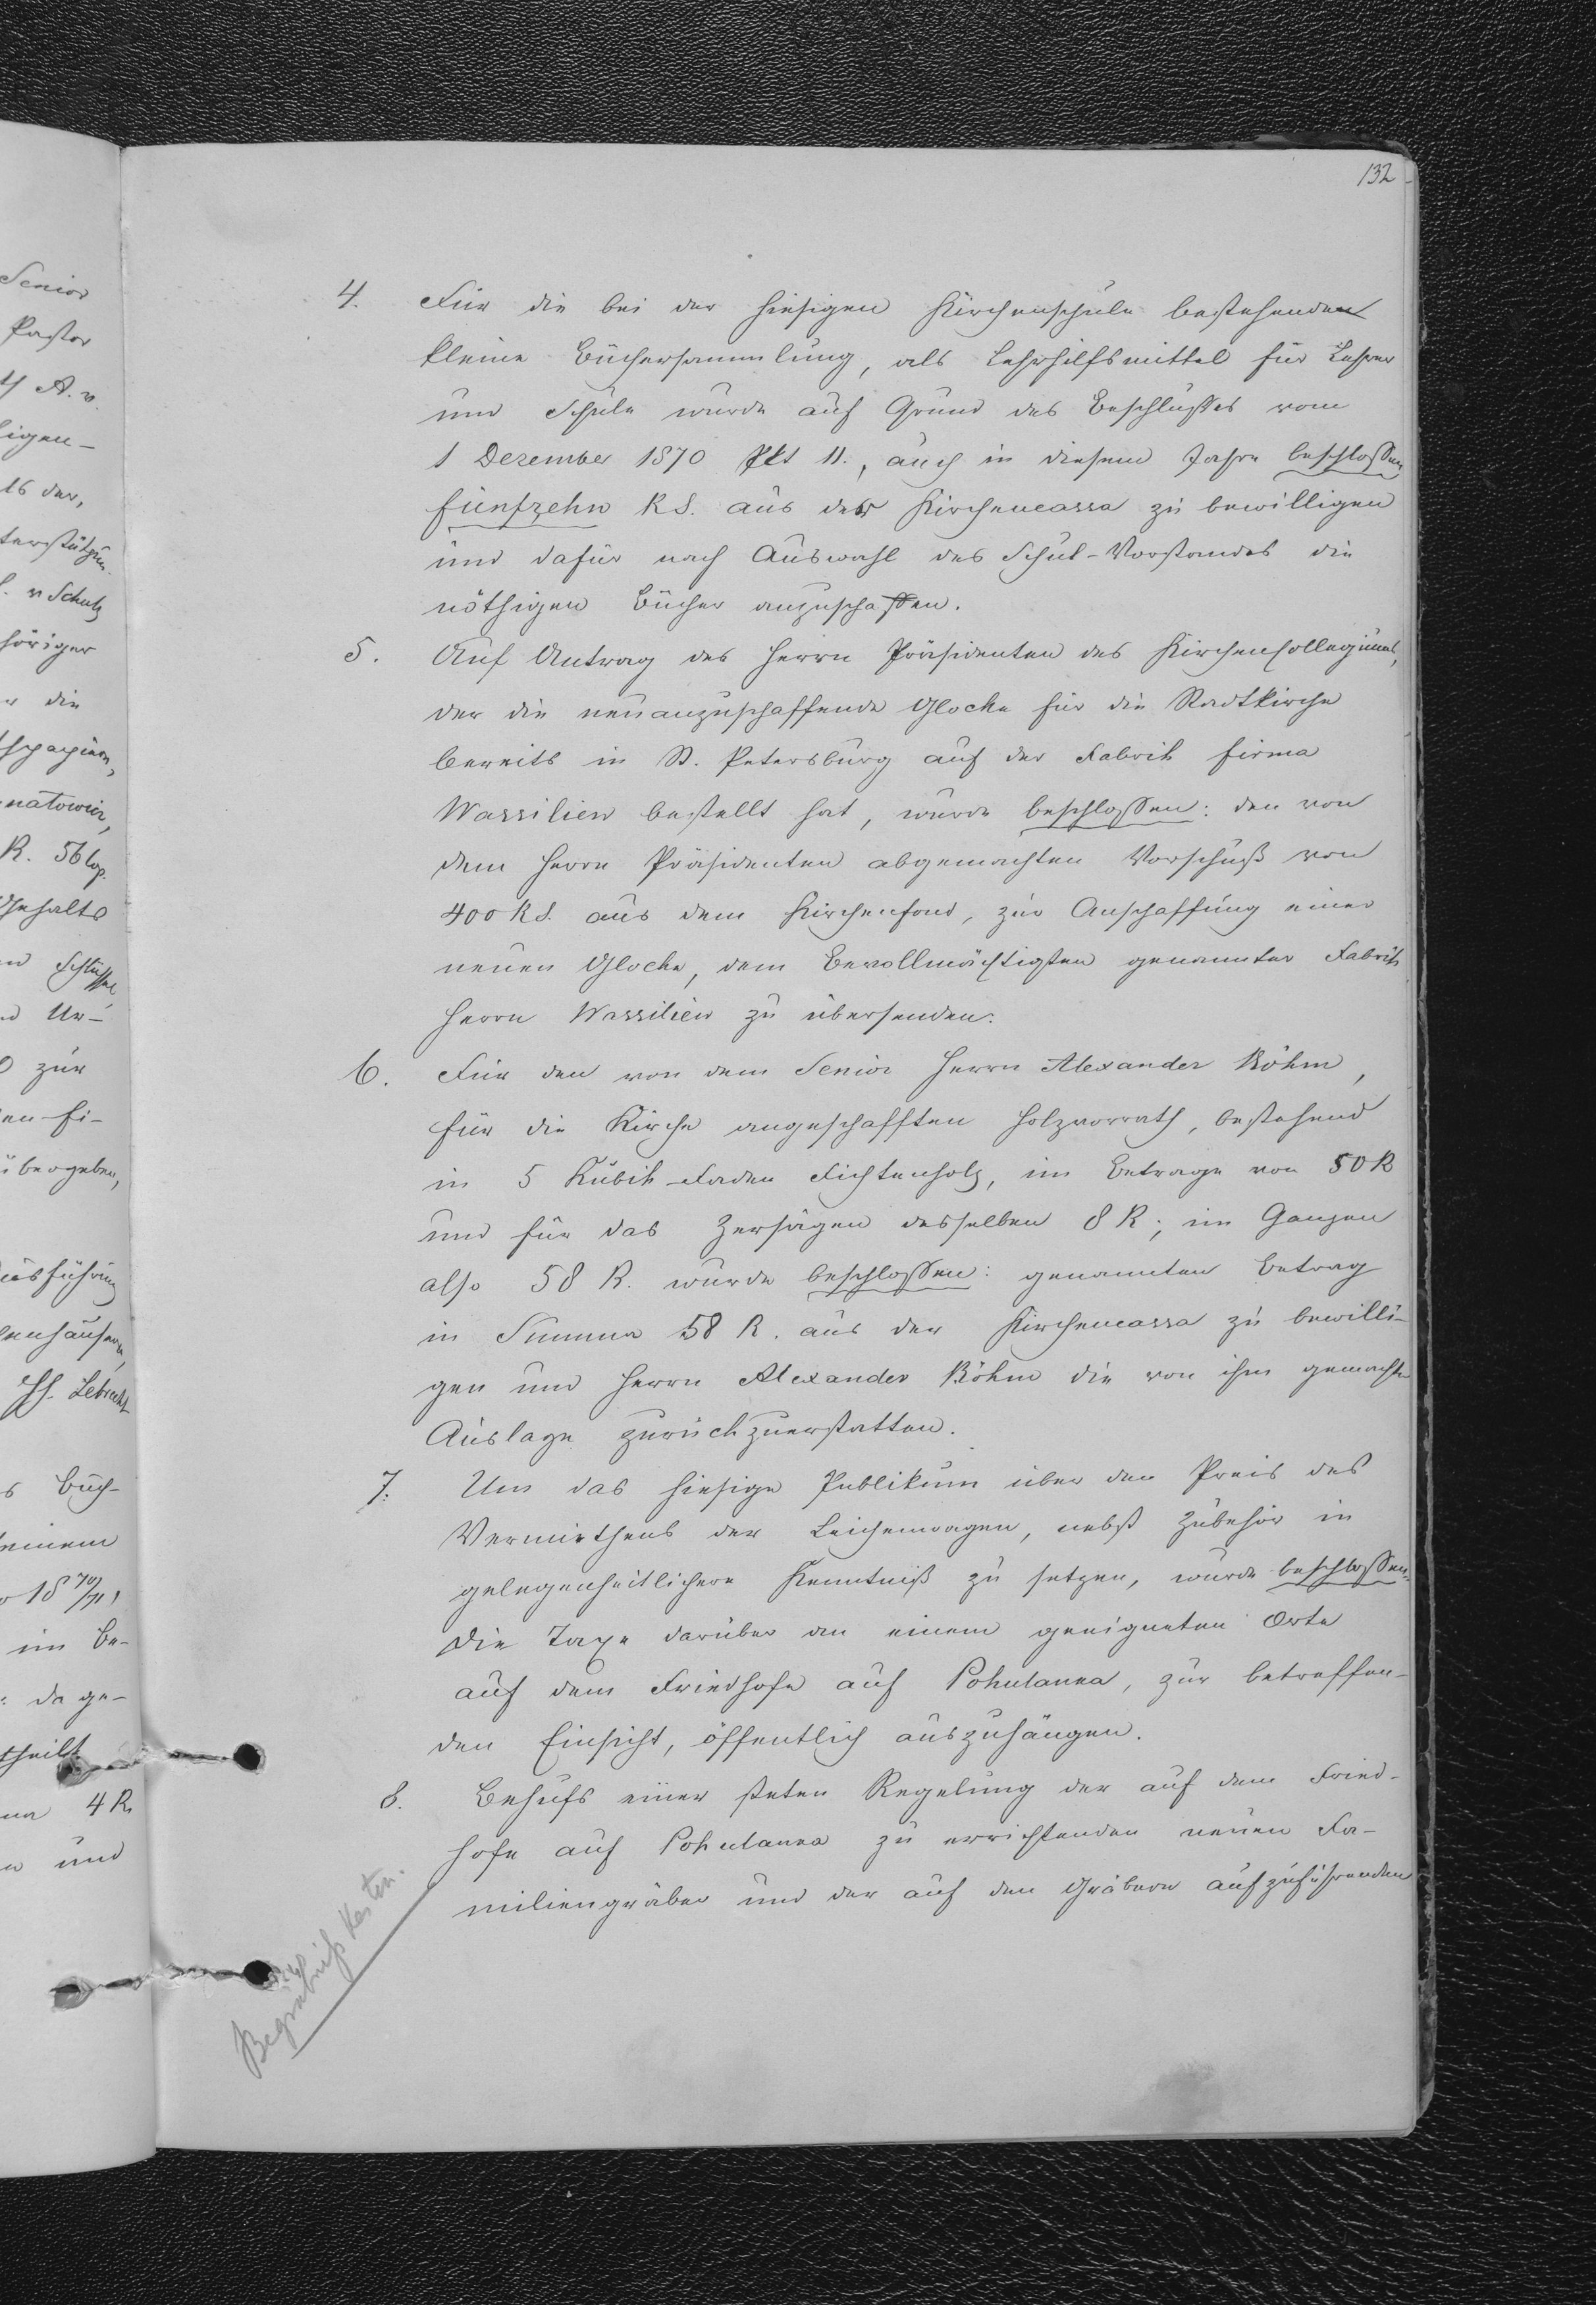 132
4. Für die bei der hiesigen Kirchenschule bestehenden
kleine Büchersammlung, als Lehrhilfsmittel für Lehrer
und Schule wurde auf Grund des Beschlußes vom
1 Dezember 1870 Pkt 11., auch in diesem Jahre beschloßen
fünfzehn R S. aus der Kirchencassa zu bewilligen
und dafür nach Auswahl des Schul-Vorstandes die
nöthigen Bücher anzuschaffen.
5. Auf Antrag des Herrn Präsidenten des Kirchenkollegiums,
der die neuanzuschaffende Glocke für die Stadtkirche
bereits in St. Petersburg auf der Fabrik firma
Wassiliew bestellt hat, wurde beschloßen: den von
dem Herrn Präsidenten abgemachten Vorschuß von
400 R S. aus dem Kirchenfond, zur Anschaffung einer
neuen Glocke, dem Bevollmächtigten genannter Fabrik
Herrn Wassiliew zu übersenden.
6. Für den von dem Senior Herrn Alexander Böhm,
für die Kirche angeschafften Holzvorrath, bestehend
in 5 Kubik-Faden Fichtenholz, im Betrage von 50 R
und für das Zersägen desselben 8 R; im Ganzen
also 58 R. wurde beschloßen: genannten Betrag
in Summa 58 R. aus der Kirchencassa zu bewilli-
gen und Herrn Alexander Böhm die von ihm gemachte
Auslage zurückzuerstatten.
7. Um das hiesige Publikum über den Preis des
Vermiethens der Leichenwagen, nebst Zubehör in
gelegenheitlichere Kenntniß zu setzen, wurde beschloßen:
die Taxe darüber an einem geeigneten Orte
auf dem Friedhofe auf Pohulanka, zur betreffen-
den Einsicht, öffentlich auszuhängen.
8. Behufs einer steten Regelung der auf dem Fried-
hofe auf Pohulanka zu errichtenden neuen Fa-
miliengräber und der auf den Gräbern aufzuführenden
Begräbniß Kosten.
Senior
Pastor
A. v.
igen-
16 der,
v Schulz
höriger
die
natowicz,
R. 56 Cop.
Gehalts
Schlüssel
Ur-
zur
übergeben,
Ausführung
Lebrecht
Buch-
einem
18 70/71,
im Be-
da ge-
theilt
4 R.
und